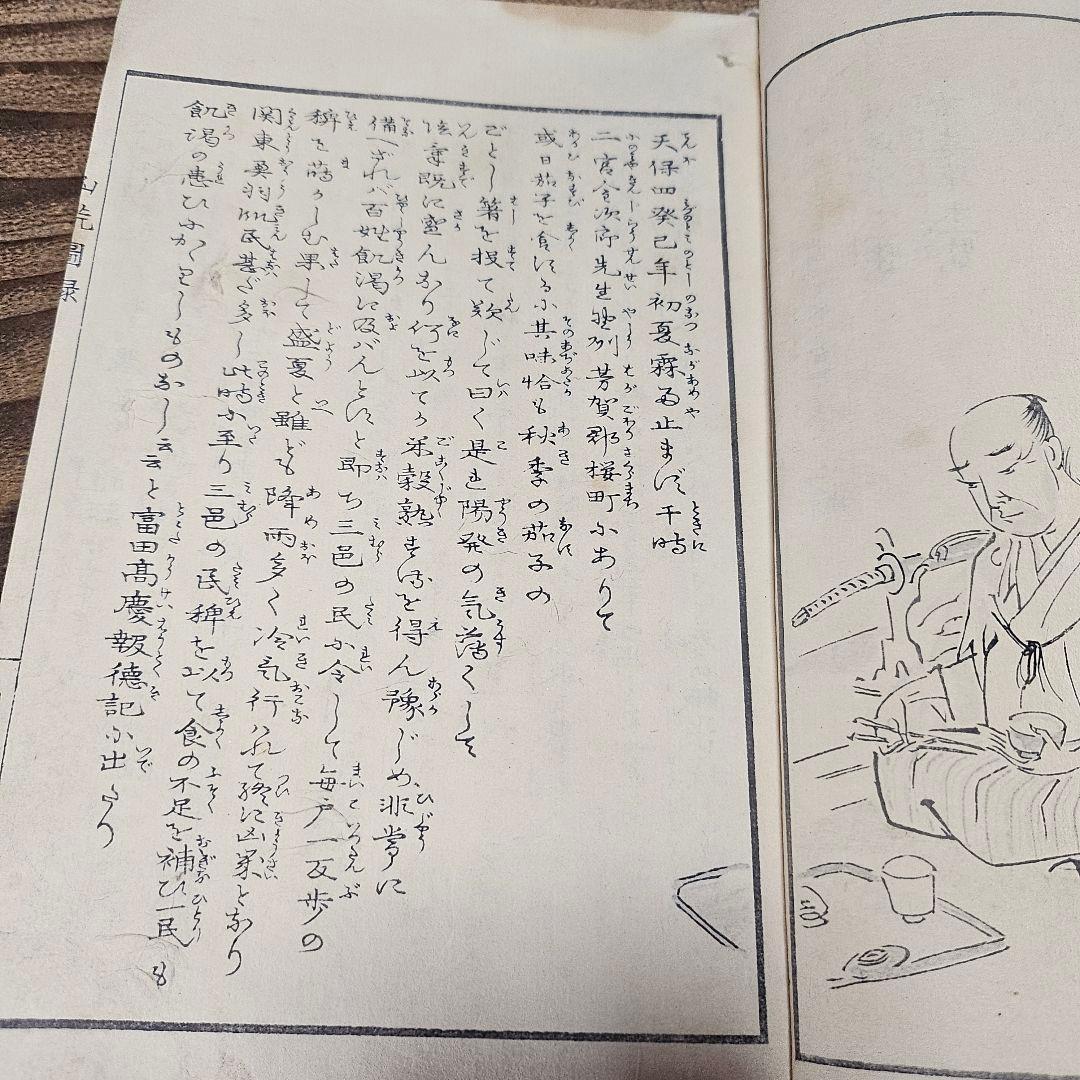 天保四癸巳年初夏霖雨止まず于時
二宮金次郎先生野州芳賀郡桜町にありて
或日茄子を食するに其味恰も秋季の茄子の
ごとし箸を投て歎じて曰く是れ陽発の気薄くして
陰気既に盛んなり何を以てか米穀熟するを得ん豫じめ非常に
備へざれバ百姓飢渇に及バんとすと即ち三邑の民に令して毎戸一反歩の
稗を蒔かしむ果して盛夏と雖ども降雨多く冷気行ハれて終に凶歳となり
関東奥羽飢民甚だ多し此時に至り三邑の民稗を以て食の不足を補ひ一民も
飢渇の患ひにかゝりしものなし云云と富田高慶報徳記に出たり
圖録